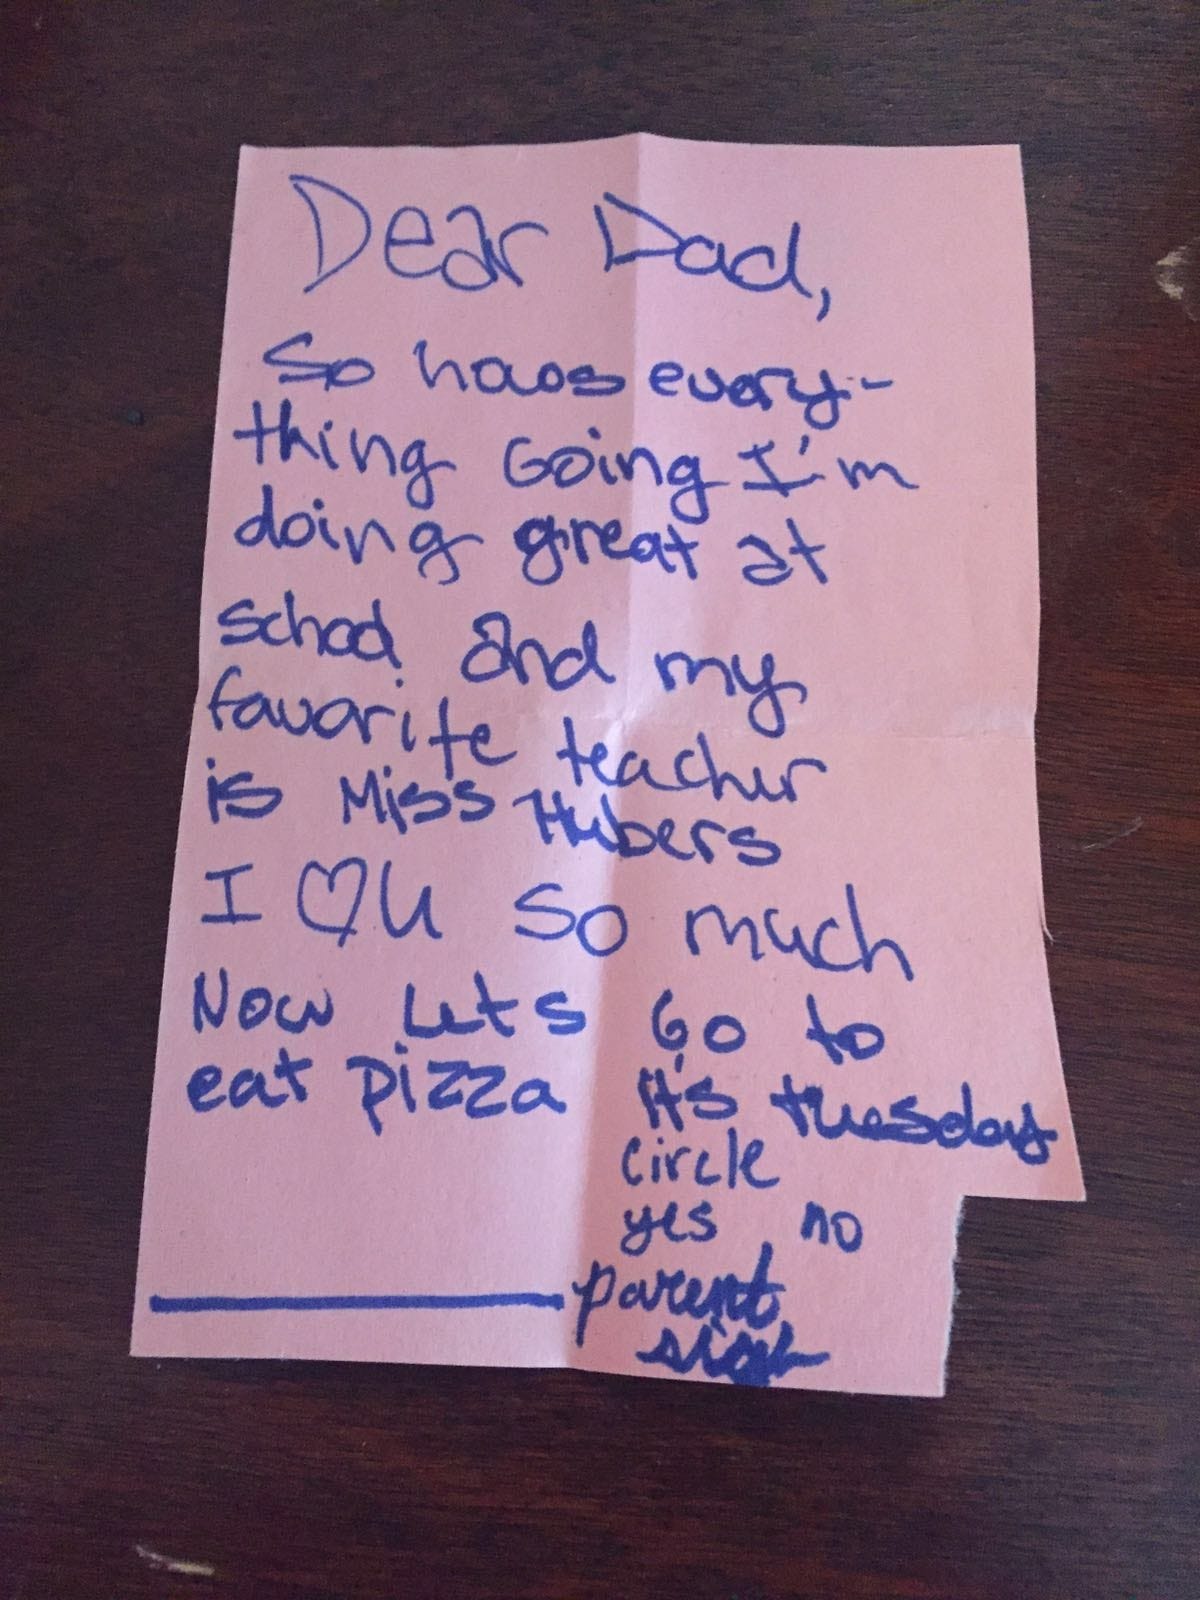 Dear Dad,
So haos every-
thing Going I'm
doing great at
school and my
favorite teacher
is Miss Hubers
I ♡ u so much
Now Lets Go to
eat pizza it's tuesday
circle
yes no
parent
sign